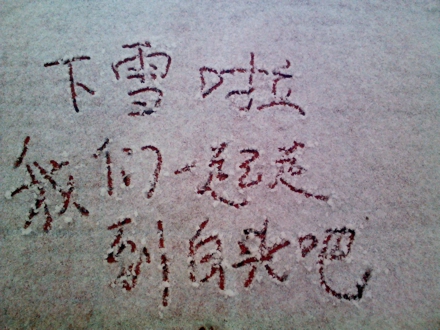 下雪啦
我们一起走
到白头吧